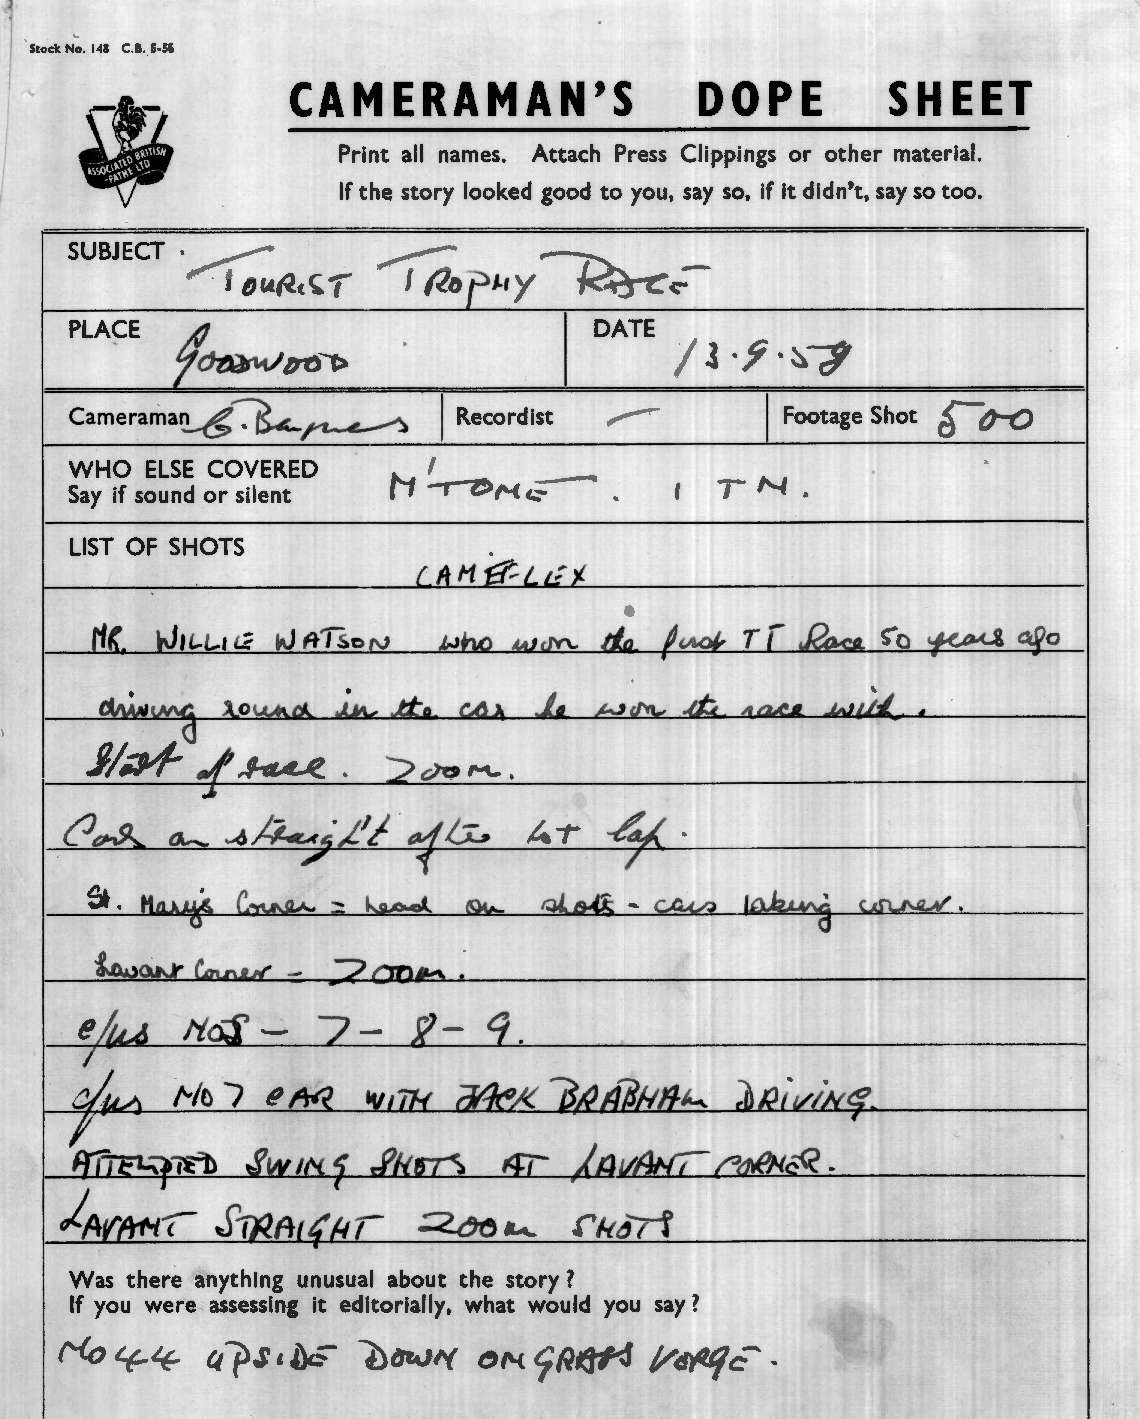 Stock No. 148 C.B. 5-56
CAMERAMAN'S DOPE SHEET
ASSOCIATED BRITISH
-PATHE LTD
Print all names. Attach Press Clippings or other material.
If the story looked good to you, say so, if it didn't, say so too.
SUBJECT TOURIST TROPHY RACE
PLACE GOODWOOD DATE 13.9.58
Cameraman G. Baynes Recordist — Footage Shot 500
WHO ELSE COVERED
Say if sound or silent M'TONE. ITN.
LIST OF SHOTS
CAMEFLEX
MR. WILLIE WATSON who won the first TT Race 50 years ago
driving round in the car he won the race with.
Start of race. Zoom.
Cars on straight after 1st lap.
St. Mary's Corner = head on shots - cars taking corner.
Lavant Corner - Zoom.
c/us NOS - 7 - 8 - 9.
c/us NO 7 CAR WITH JACK BRABHAM DRIVING.
ATTEMPTED SWING SHOTS AT LAVANT CORNER.
LAVANT STRAIGHT ZOOM SHOTS
Was there anything unusual about the story?
If you were assessing it editorially, what would you say?
NO 44 UPSIDE DOWN ON GRASS VERGE.